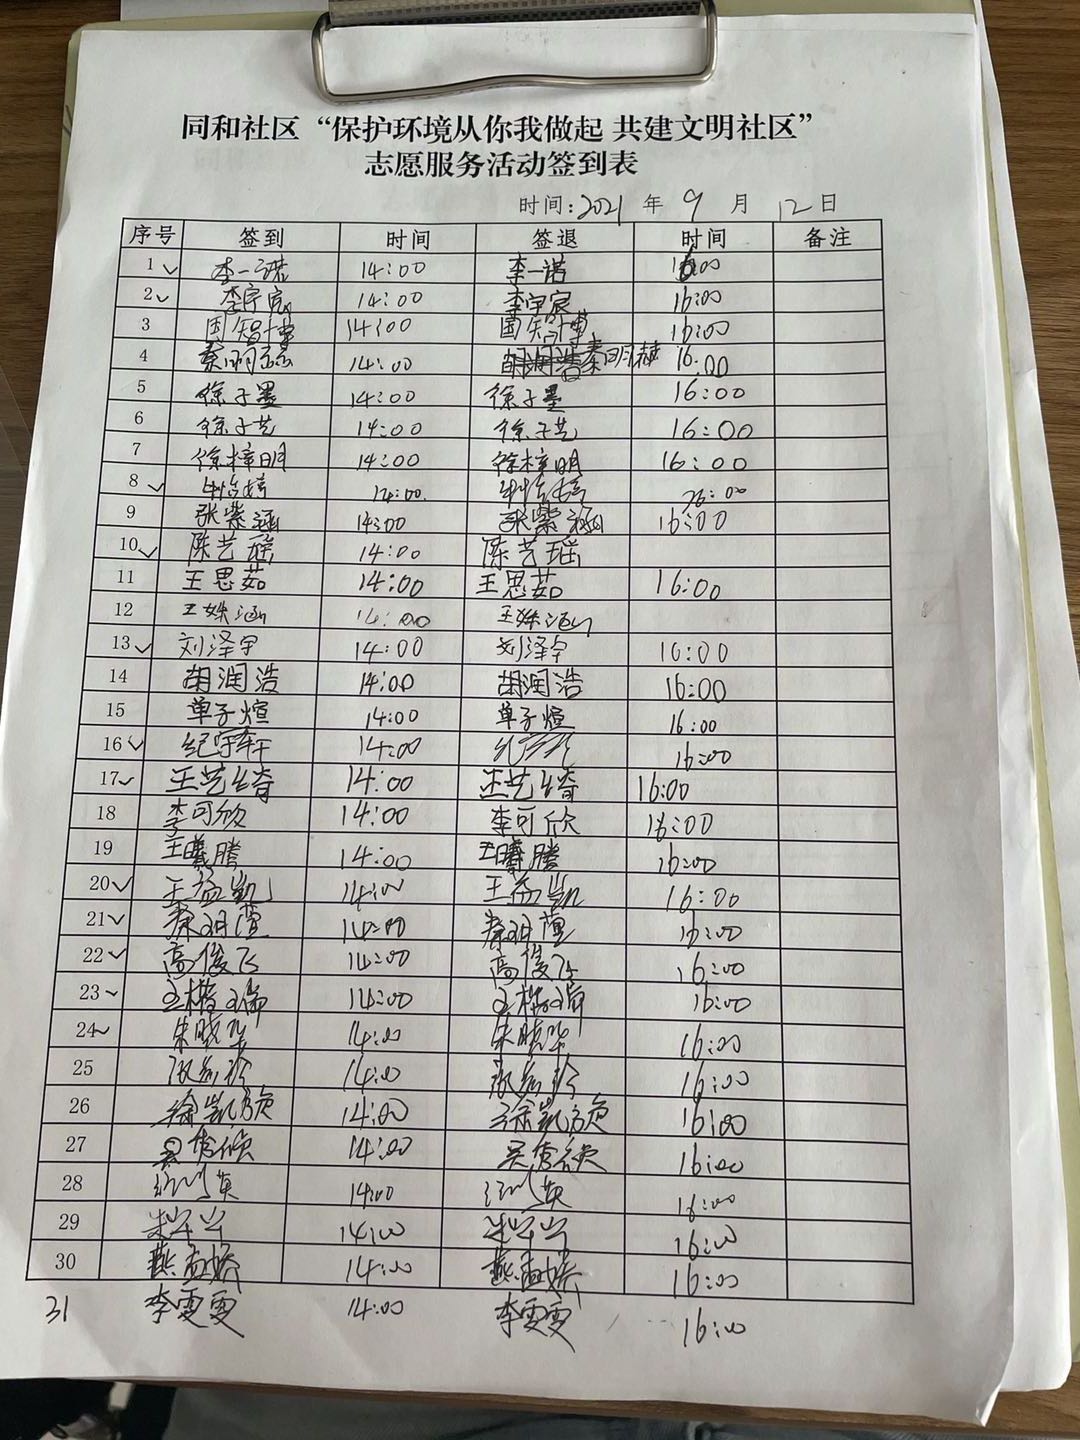 同和社区“保护环境从你我做起 共建文明社区”
志愿服务活动签到表
时间:2021 年 9 月 12 日
序号 签到 时间 签退 时间 备注
1 ✓ 李一诺 14:00 李一诺 16:00
2 ✓ 李宇宸 14:00 李宇宸 16:00
3 国智博 14:00 国智博 16:00
4 秦明 14:00 胡润浩 秦明赫 16:00
5 徐子墨 14:00 徐子墨 16:00
6 徐子艺 14:00 徐子艺 16:00
7 徐梓明 14:00 徐梓明 16:00
8 ✓ 14:00. 16:00
9 张紫涵 14:00 张紫涵 16:00
10 ✓ 陈艺瑶 14:00 陈艺瑶
11 王思茹 14:00 王思茹 16:00
12 王姝涵 14:00 王姝涵
13 ✓ 刘泽宇 14:00 刘泽宇 16:00
14 胡润浩 14:00 胡润浩 16:00
15 单子煊 14:00 单子煊 16:00
16 ✓ 纪宇轩 14:00 16:00
17 ✓ 王艺 14:00 王艺 16:00
18 李可欣 14:00 李可欣 16:00
19 王曦腾 14:00 王曦腾 16:00
20 ✓ 王益凯 14:00 王益凯 16:00
21 ✓ 秦 14:00 秦 16:00
22 ✓ 高俊飞 14:00 高俊飞 16:00
23 ✓ 王楷瑞 14:00 王楷瑞 16:00
24 ✓ 朱晓华 14:00 朱晓华 16:00
25 14:00 16:00
26 徐凯 14:00 徐凯 16:00
27 吴秀 14:00 吴秀 16:00
28 英 14:00 英 16:00
29 14:00 16:00
30 燕孟娇 14:00 燕孟娇 16:00
31 李雯雯 14:00 李雯雯 16:00